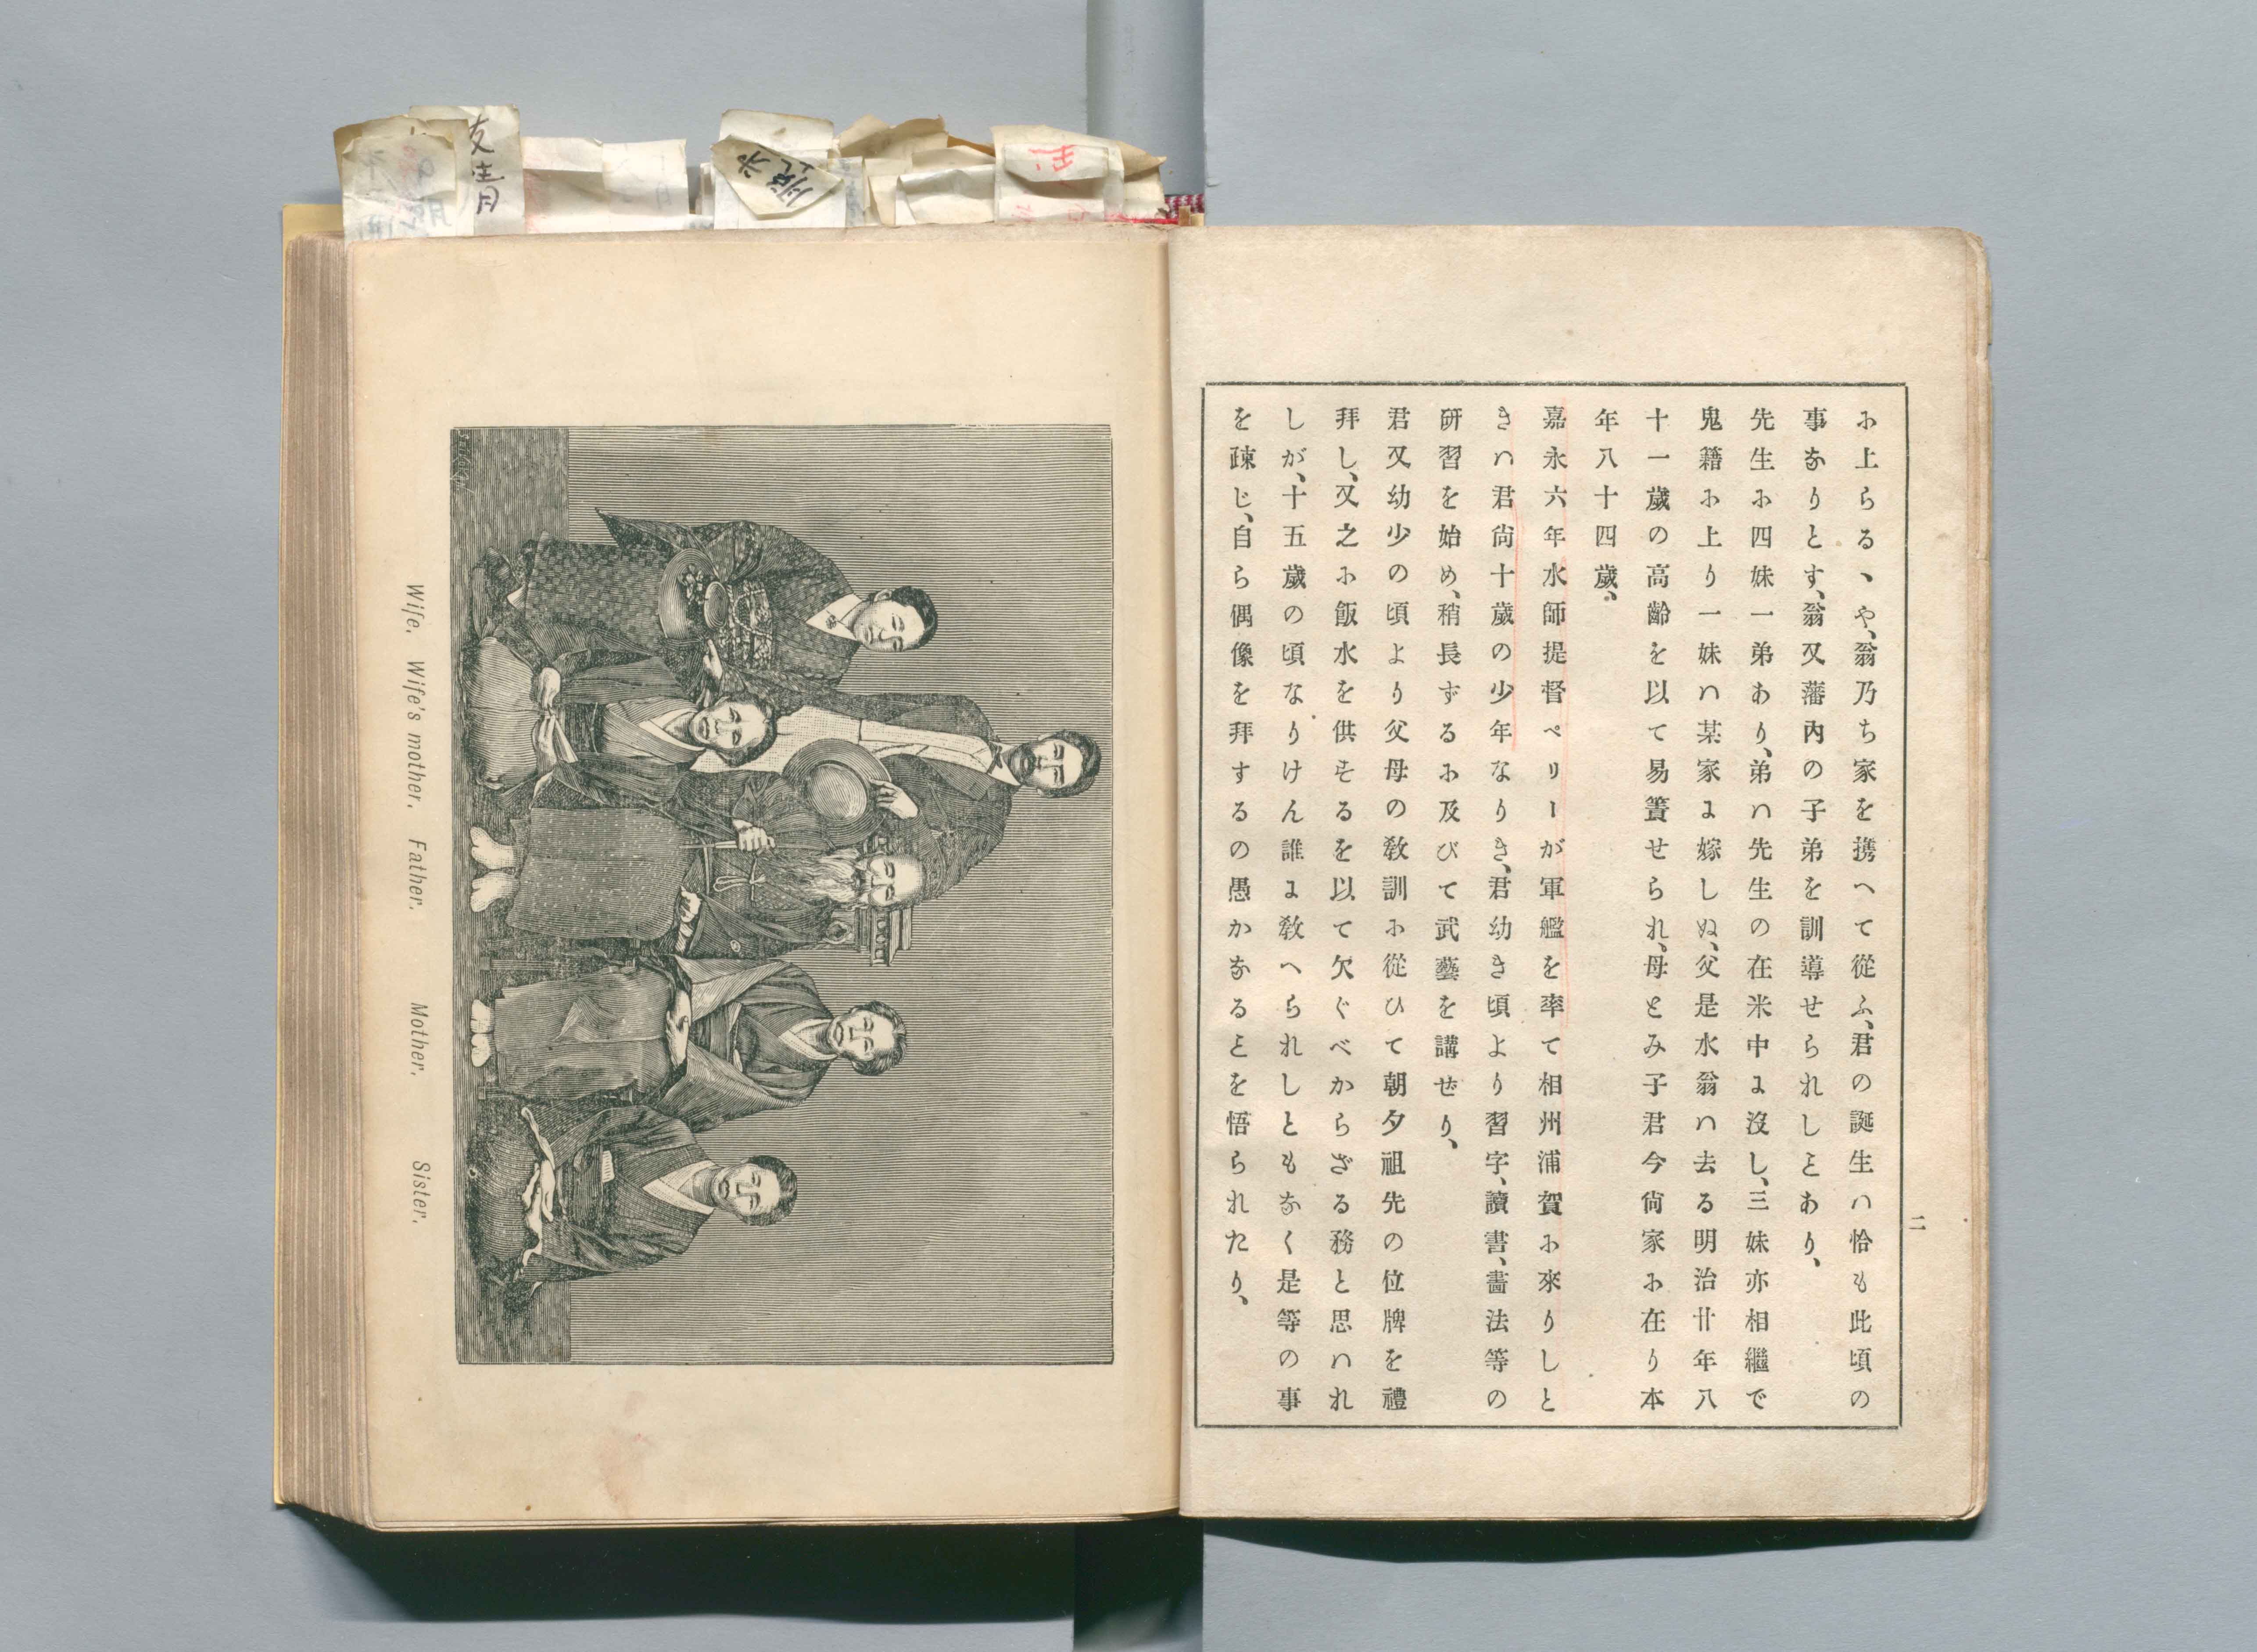 に上らるゝや、翁乃ち家を携へて從ふ、君の誕生ハ恰も此頃の
事なりとす、翁又藩內の子弟を訓導せられしとあり、
先生に四妹一弟あり、弟ハ先生の在米中に沒し、三妹亦相繼で
鬼籍に上り一妹ハ某家に嫁しぬ、父是水翁ハ去る明治廿年八
十一歲の高齡を以て易簀せられ、母とみ子君今尙家に在り本
年八十四歲、
嘉永六年水師提督ペリーが軍艦を率て相州浦賀に來りしと
きハ君尙十歲の少年なりき、君幼き頃より習字、讀書、畵法等の
硏習を始め、稍長ずるに及びて武藝を講せり、
君又幼少の頃より父母の敎訓に從ひて朝夕祖先の位牌を禮
拜し、又之に飯水を供そるを以て欠ぐべからざる務と思ハれ
しが、十五歲の頃なりけん誰に敎へられしともなく是等の事
を疎じ、自ら偶像を拜するの愚かなるとを悟られたり、
二
Wife. Wife's mother. Father. Mother. Sister.
友
青